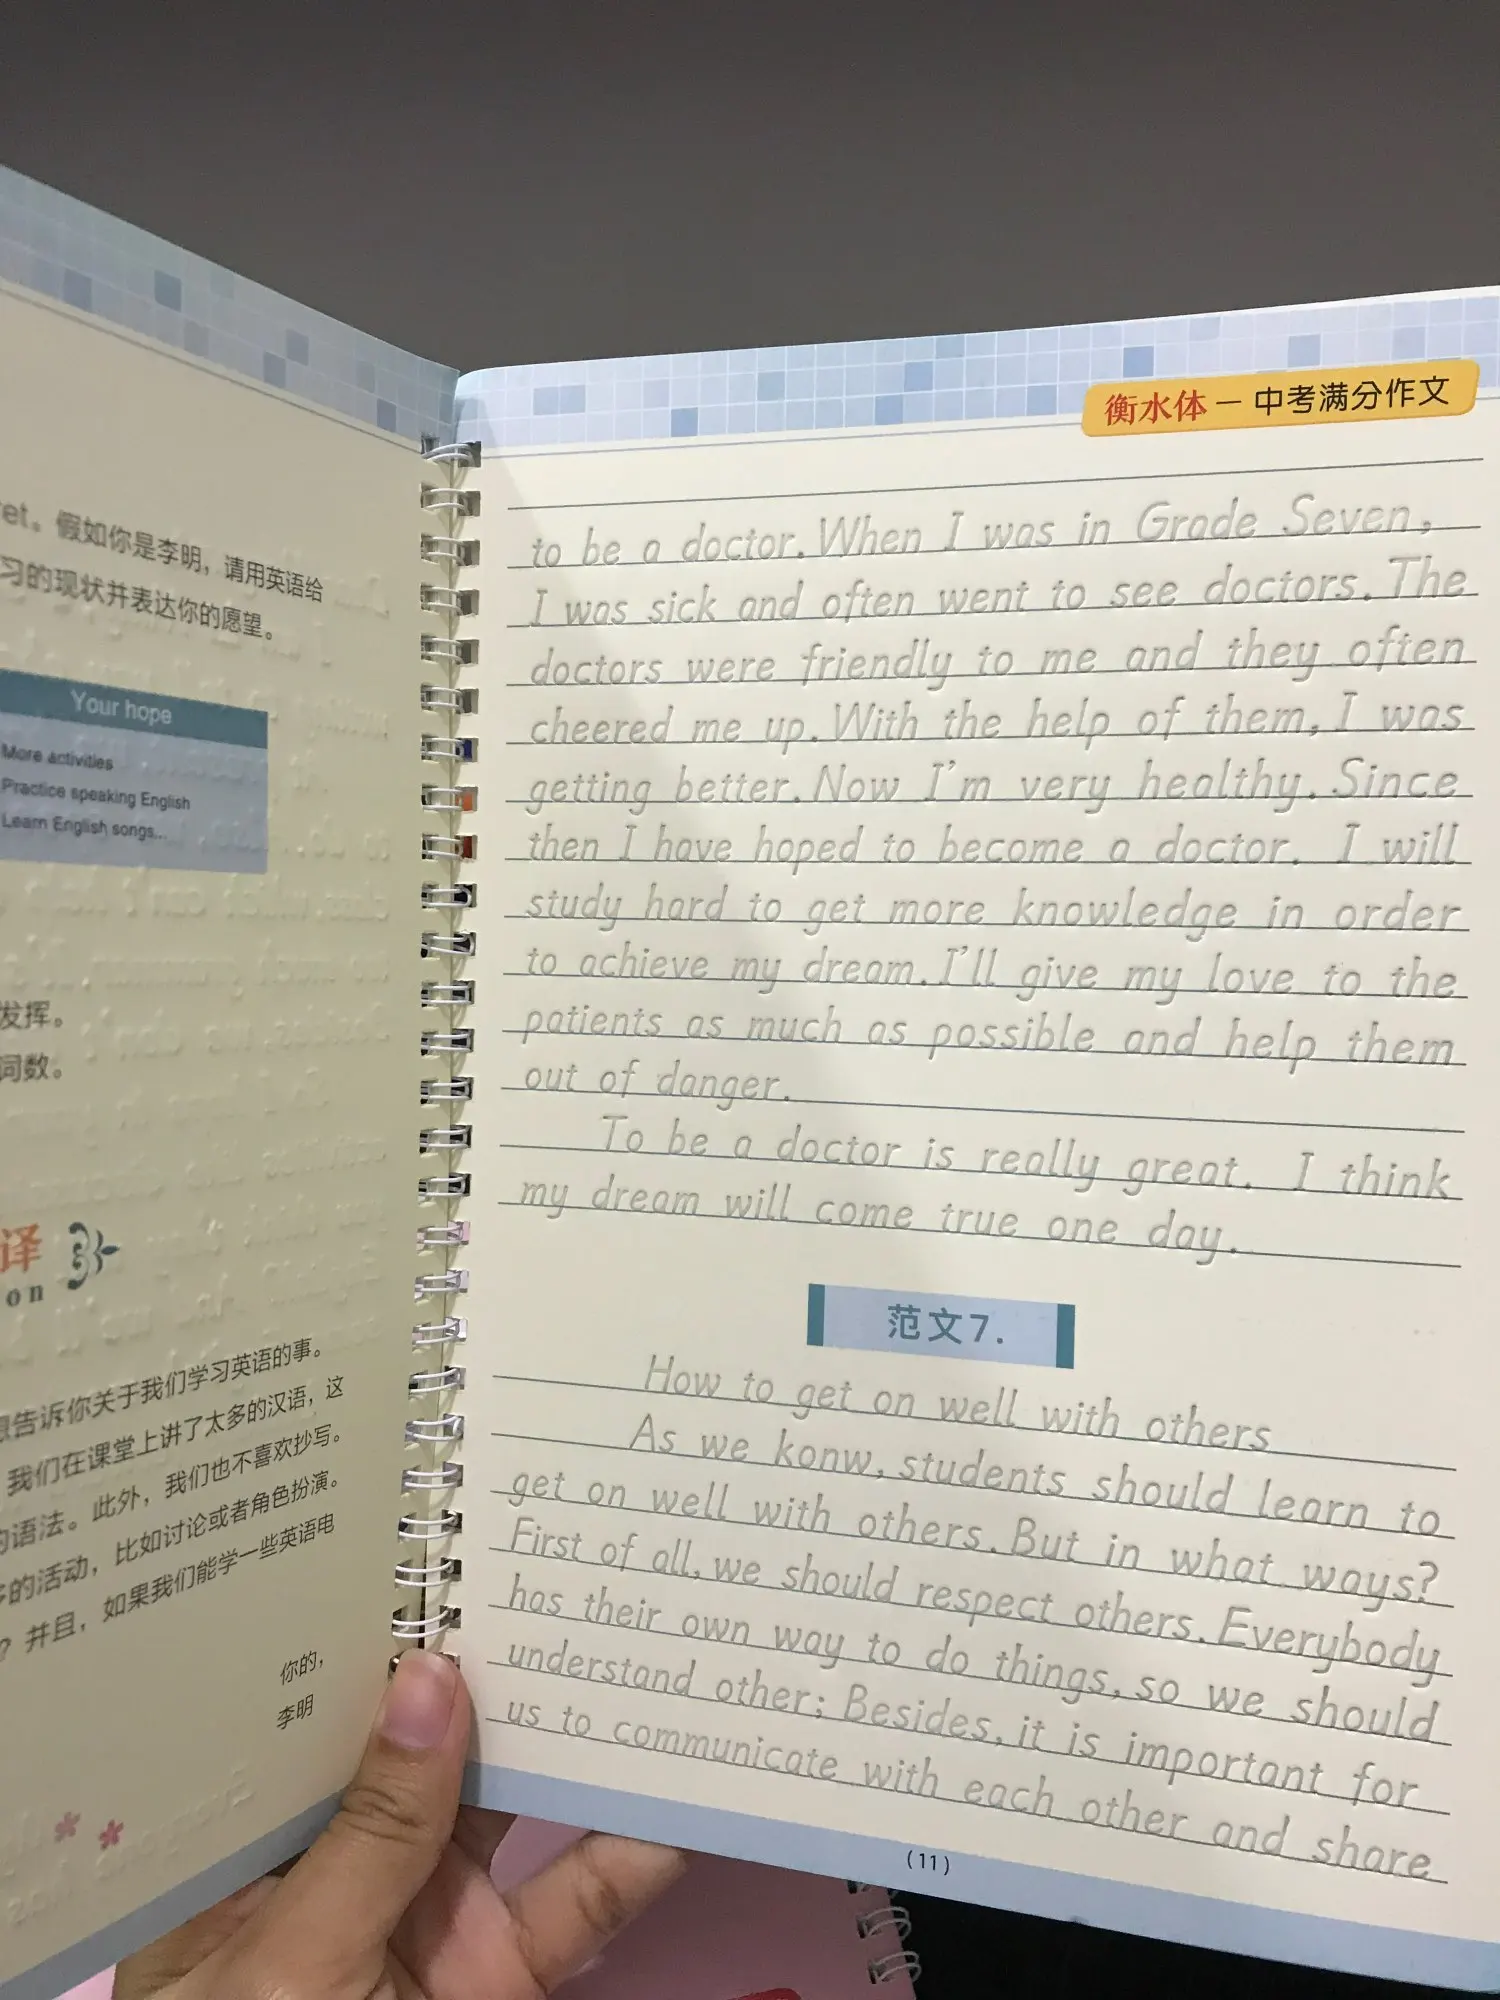 ret。假如你是李明，请用英语给
习的现状并表达你的愿望。
Your hope
More activities
Practice speaking English
Learn English songs...
发挥。
词数。
译
on
想告诉你关于我们学习英语的事。
我们在课堂上讲了太多的汉语，这
的语法。此外，我们也不喜欢抄写。
多的活动，比如讨论或者角色扮演。
？并且，如果我们能学一些英语电
你的，
李明
衡水体－中考满分作文
to be a doctor. When I was in Grade Seven,
I was sick and often went to see doctors. The
doctors were friendly to me and they often
cheered me up. With the help of them, I was
getting better. Now I'm very healthy. Since
then I have hoped to become a doctor. I will
study hard to get more knowledge in order
to achieve my dream. I'll give my love to the
patients as much as possible and help them
out of danger.
To be a doctor is really great. I think
my dream will come true one day.
范文7.
How to get on well with others
As we konw, students should learn to
get on well with others. But in what ways?
First of all, we should respect others. Everybody
has their own way to do things, so we should
understand other; Besides, it is important for
us to communicate with each other and share
(11)